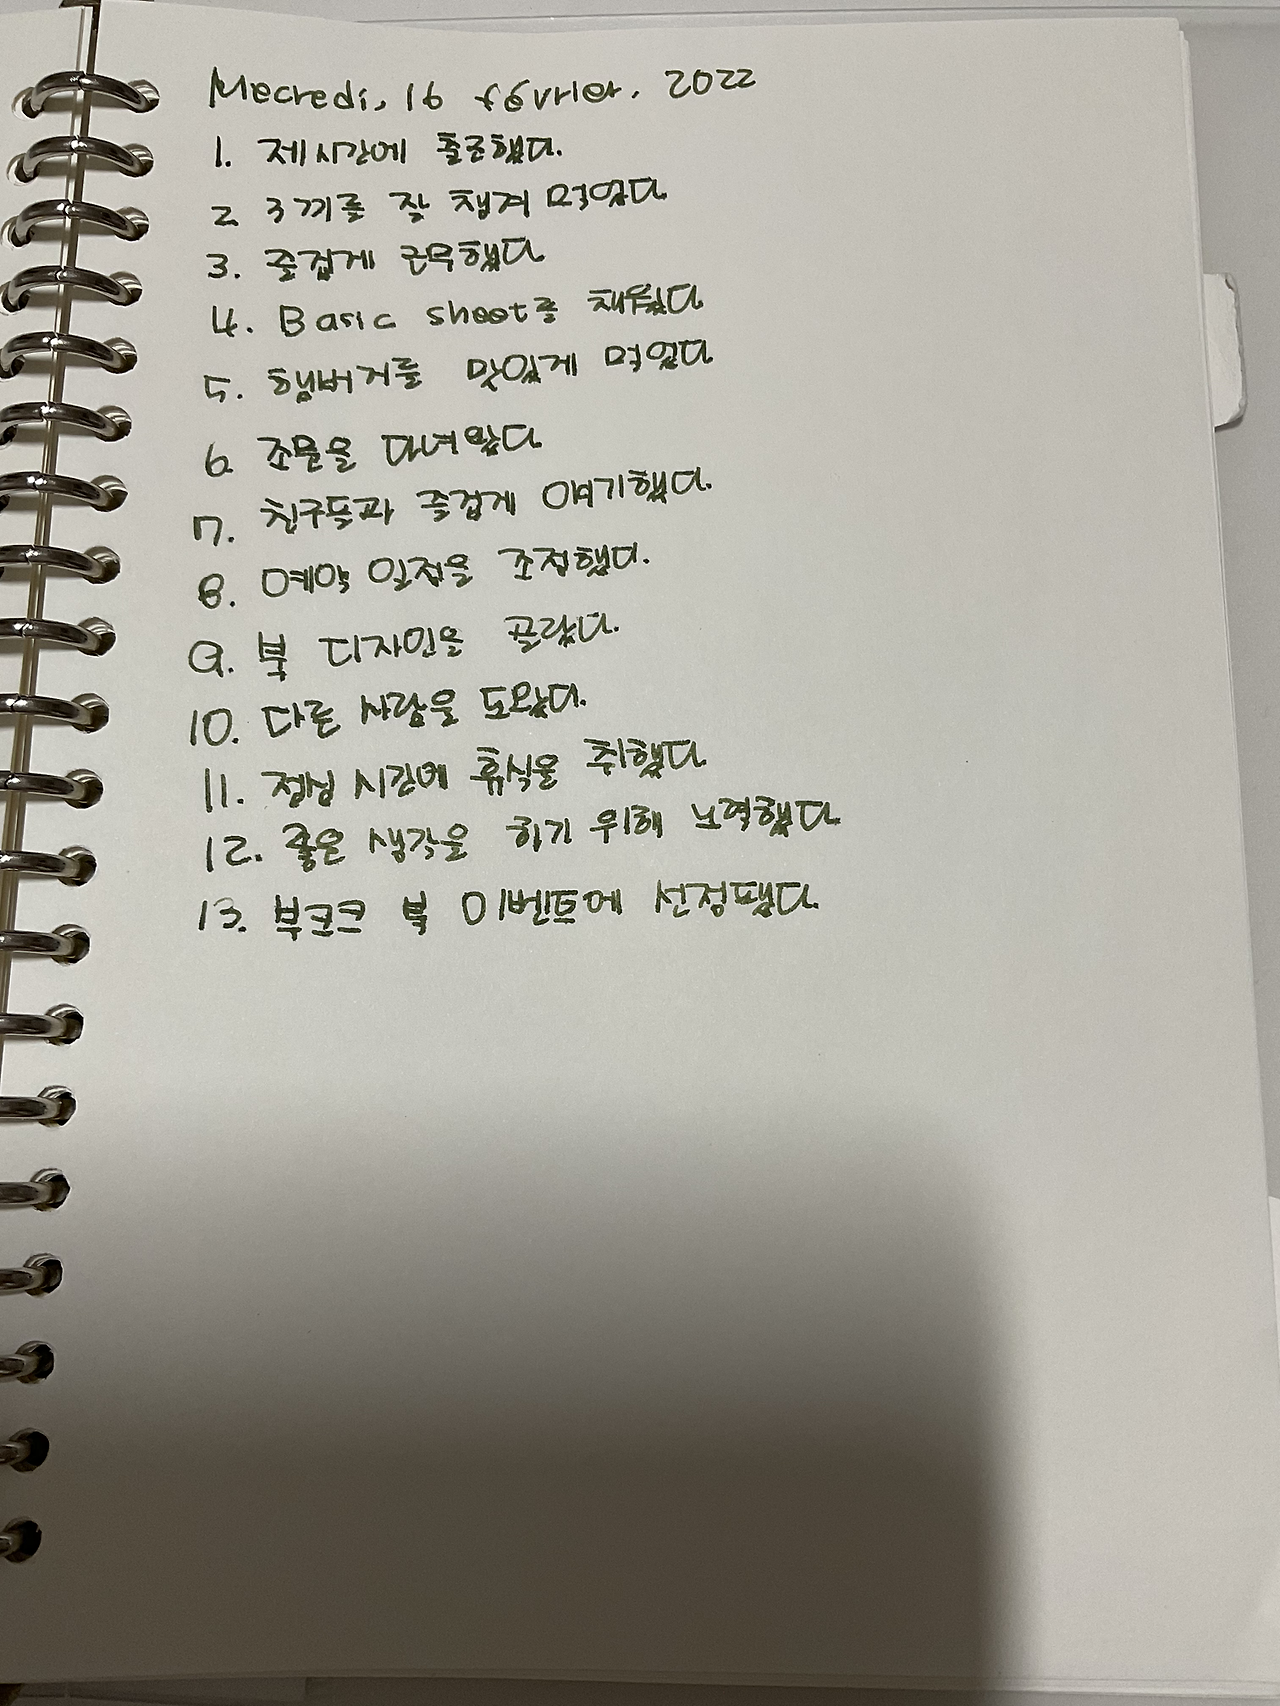 Mecredi, 16 février. 2022
1. 제시간에 출근했다.
2 3끼를 잘 챙겨 먹었다
3. 즐겁게 근무했다
4. Basic sheet를 채웠다
5. 햄버거를 맛있게 먹었다
6. 조문을 다녀왔다
7. 친구들과 즐겁게 얘기했다.
8. 예약 일정을 조정했다.
9. 북 디자인을 골랐다.
10. 다른 사람을 도왔다.
11. 점심 시간에 휴식을 취했다
12. 좋은 생각을 하기 위해 노력했다
13. 부크크 북 이벤트에 선정됐다.